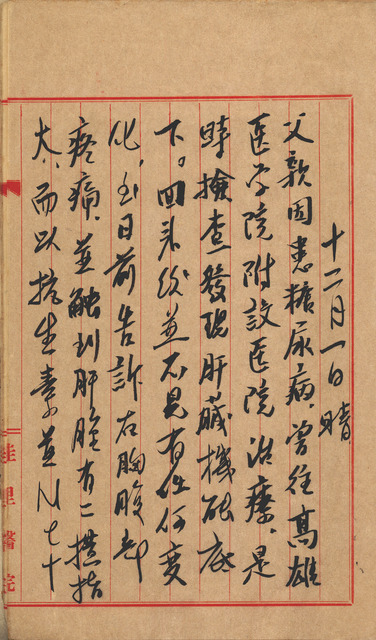 十二月一日晴
父親因患糖尿病，曾往高雄
医学院附設医院治療，是
時檢查發現肝臟機能底
下。回来後並不見有任何变
化，至日前告訴右胸腹部
疼痛，並触到肝臟有二横指
大，而以抗生素並N七十
佳里醫院